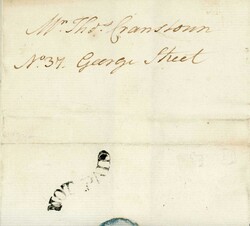 Mr. Thos. Cranstoun
No. 37. George Street
NOT PAID